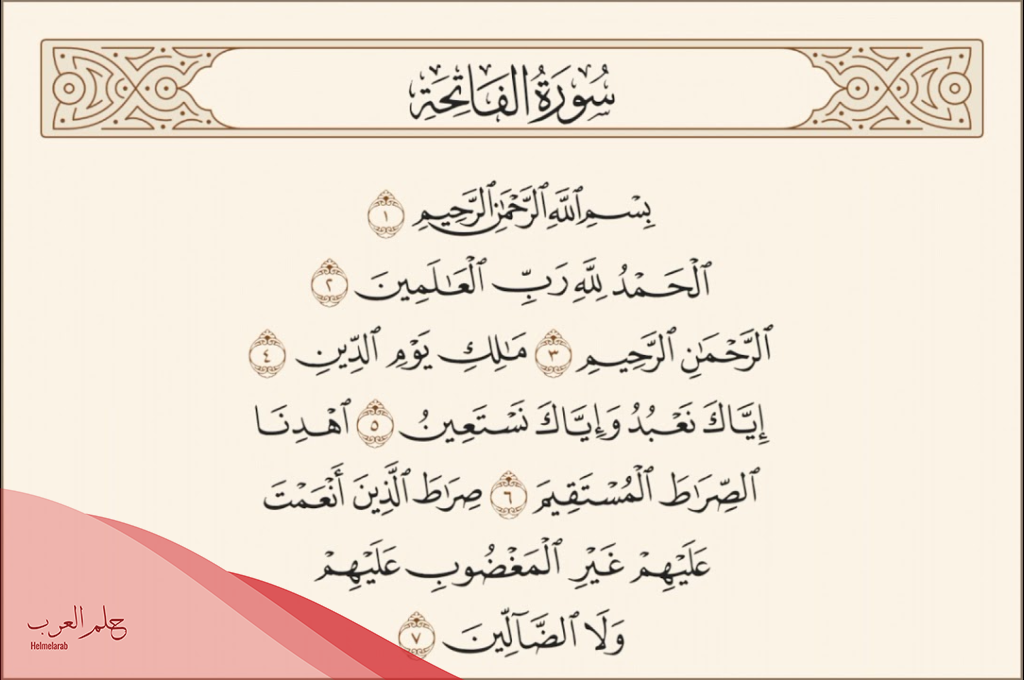 سُورَةُ الفَاتِحَةِ
بِسۡمِ ٱللَّهِ ٱلرَّحۡمَٰنِ ٱلرَّحِيمِ ١
ٱلۡحَمۡدُ لِلَّهِ رَبِّ ٱلۡعَٰلَمِينَ ٢
ٱلرَّحۡمَٰنِ ٱلرَّحِيمِ ٣ مَٰلِكِ يَوۡمِ ٱلدِّينِ ٤
إِيَّاكَ نَعۡبُدُ وَإِيَّاكَ نَسۡتَعِينُ ٥ ٱهۡدِنَا
ٱلصِّرَٰطَ ٱلۡمُسۡتَقِيمَ ٦ صِرَٰطَ ٱلَّذِينَ أَنۡعَمۡتَ
عَلَيۡهِمۡ غَيۡرِ ٱلۡمَغۡضُوبِ عَلَيۡهِمۡ
وَلَا ٱلضَّآلِّينَ ٧
حلم العرب
Helmelarab